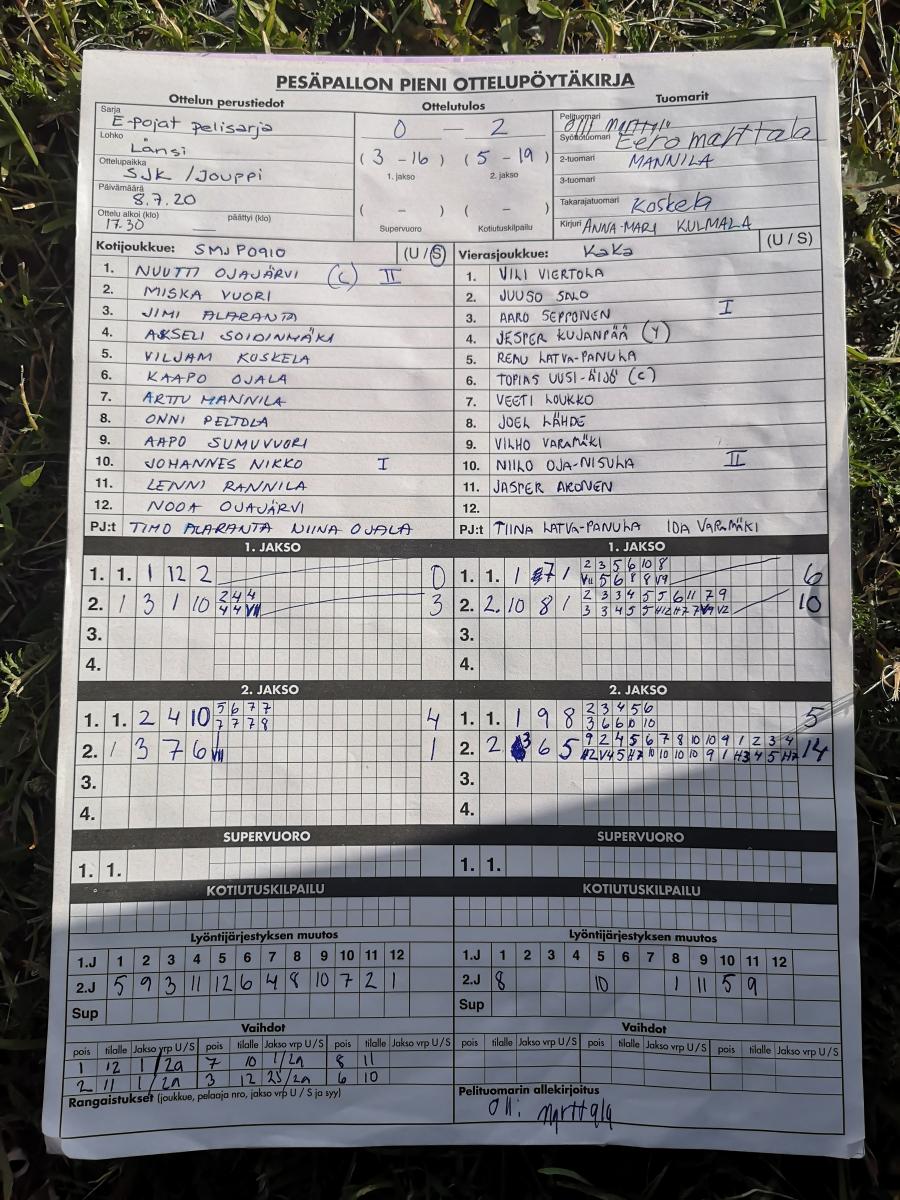 PESÄPALLON PIENI OTTELUPÖYTÄKIRJA
Ottelun perustiedot
Ottelutulos
Tuomarit
Sarja
E-pojat pelisarja
Lohko
Länsi
Ottelupaikka
SJK / Jouppi
Päivämäärä
8.7.20
Ottelu alkoi (klo) päättyi (klo)
17.30
0 – 2
(3 – 16) (5 – 19)
1. jakso 2. jakso
( – ) ( – )
Supervuoro Kotiutuskilpailu
Pelituomari
Olli Marttala
Syöttötuomari Eero marttala
2-tuomari MANNILA
3-tuomari
Takarajatuomari Koskela
Kirjuri ANNA-MARI KULMALA
Kotijoukkue: SMJ PO910 (U / S)
1. NUUTTI OJAJÄRVI (C) II
2. MISKA VUORI
3. JIMI ALARANTA
4. AKSELI SOIDINMÄKI
5. VILJAM KOSKELA
6. KAAPO OJALA
7. ARTTU MANNILA
8. ONNI PELTOLA
9. AAPO SUMUVUORI
10. JOHANNES NIKKO I
11. LENNI RANNILA
12. NOOA OJAJÄRVI
PJ:t TIMO ALARANTA NIINA OJALA
Vierasjoukkue: KaKa (U / S)
1. VILI VIERTOLA
2. JUUSO SALO
3. AARO SEPPONEN I
4. JESPER KUJANPÄÄ (Y)
5. REMU LATVA-PANULA
6. TOPIAS UUSI-ÄIJÖ (C)
7. VEETI LOUKKO
8. JOEL LÄHDE
9. VILHO VARAMÄKI
10. NIILO OJA-NISULA II
11. JASPER ARONEN
12.
PJ:t TIINA LATVA-PANULA IDA VARAMÄKI
1. JAKSO
1. 1. 1 12 2 0
2. 1 3 1 10 2 4 4 3
4 4 VII
3.
4.
1. JAKSO
1. 1. 1 7 1 2 3 5 6 10 8 6
VII 5 6 8 8 V9
2. 2. 10 8 1 2 3 3 4 5 5 6 11 7 9 10
3 3 4 5 5
3.
4.
2. JAKSO
1. 1. 2 4 10 5 6 7 7 4
7 7 7 8
2. 1 3 7 6 VII 1
3.
4.
2. JAKSO
1. 1. 1 9 8 2 3 4 5 6 5
3 6 6 10 10
2. 2 3 6 5 9 2 4 5 6 7 8 10 10 9 1 2 3 4 14
H2 V4 5 H7 10 10 10 10 9 1 H3 4 5 H7
3.
4.
SUPERVUORO
1. 1.
SUPERVUORO
1. 1.
KOTIUTUSKILPAILU
KOTIUTUSKILPAILU
Lyöntijärjestyksen muutos
1.J 1 2 3 4 5 6 7 8 9 10 11 12
2.J 5 9 3 11 12 6 4 8 10 7 2 1
Sup
Lyöntijärjestyksen muutos
1.J 1 2 3 4 5 6 7 8 9 10 11 12
2.J 8 10 1 11 5 9
Sup
Vaihdot
pois tilalle Jakso vrp U / S pois tilalle Jakso vrp U / S pois tilalle Jakso vrp U / S
1 12 1/2a 7 10 1/2a 8 11
2 11 1/2a 3 12 2S/2a 6 10
Vaihdot
pois tilalle Jakso vrp U / S pois tilalle Jakso vrp U / S pois tilalle Jakso vrp U / S
Rangaistukset (joukkue, pelaaja nro, jakso vrp U / S ja syy)
Pelituomarin allekirjoitus
Olli Marttala